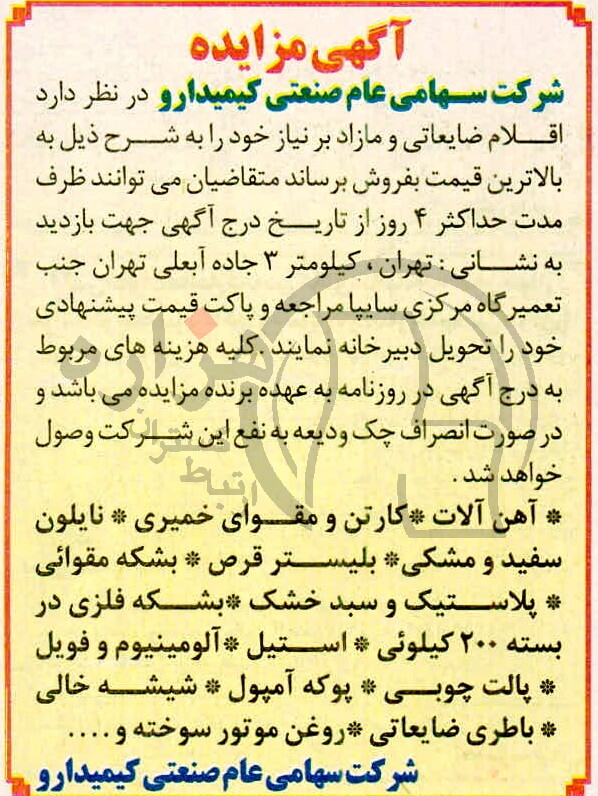 آگهی مزایده
شرکت سهامی عام صنعتی کیمیدارو در نظر دارد
اقلام ضایعاتی و مازاد بر نیاز خود را به شرح ذیل به
بالاترین قیمت بفروش برساند متقاضیان می توانند ظرف
مدت حداکثر ۴ روز از تاریخ درج آگهی جهت بازدید
به نشانی : تهران ، کیلومتر ۳ جاده آبعلی تهران جنب
تعمیرگاه مرکزی سایپا مراجعه و پاکت قیمت پیشنهادی
خود را تحویل دبیرخانه نمایند .کلیه هزینه های مربوط
به درج آگهی در روزنامه به عهده برنده مزایده می باشد و
در صورت انصراف چک ودیعه به نفع این شرکت وصول
خواهد شد .
* آهن آلات *کارتن و مقوای خمیری * نایلون
سفید و مشکی* بلیستر قرص * بشکه مقوائی
* پلاستیک و سبد خشک *بشکه فلزی در
بسته ۲۰۰ کیلوئی * استیل *آلومینیوم و فویل
* پالت چوبی * پوکه آمپول * شیشه خالی
* باطری ضایعاتی *روغن موتور سوخته و ....
شرکت سهامی عام صنعتی کیمیدارو
هزاره
گستران
ارتباط